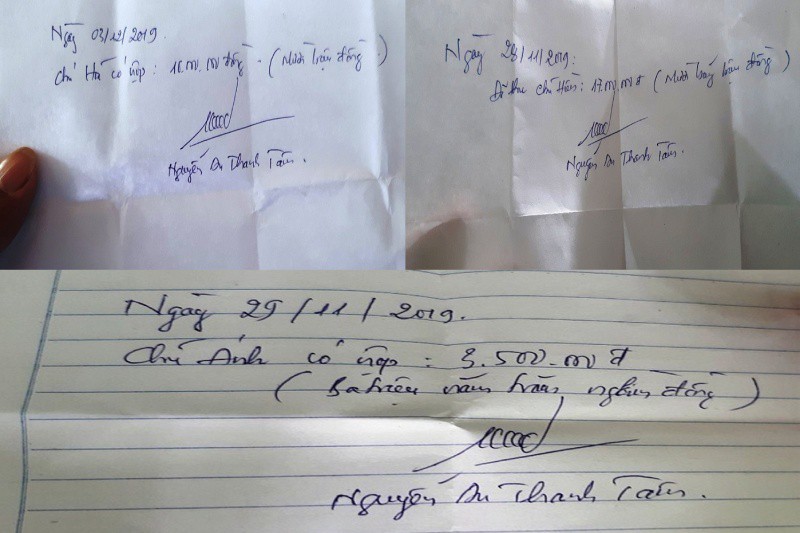 Ngày 03/12/2019.
Chị Hà có nộp : 10.000.000 đồng. (Mười triệu đồng)
Nguyễn An Thanh Tâm.
Ngày 28/11/2019:
Đã thu chị Hiền: 17.000.000 đ (Mười bảy triệu đồng)
Nguyễn An Thanh Tâm.
Ngày 29/11/2019.
Chị Ánh có nộp : 3.500.000 đ
(Ba triệu năm trăm nghìn đồng)
Nguyễn An Thanh Tâm.